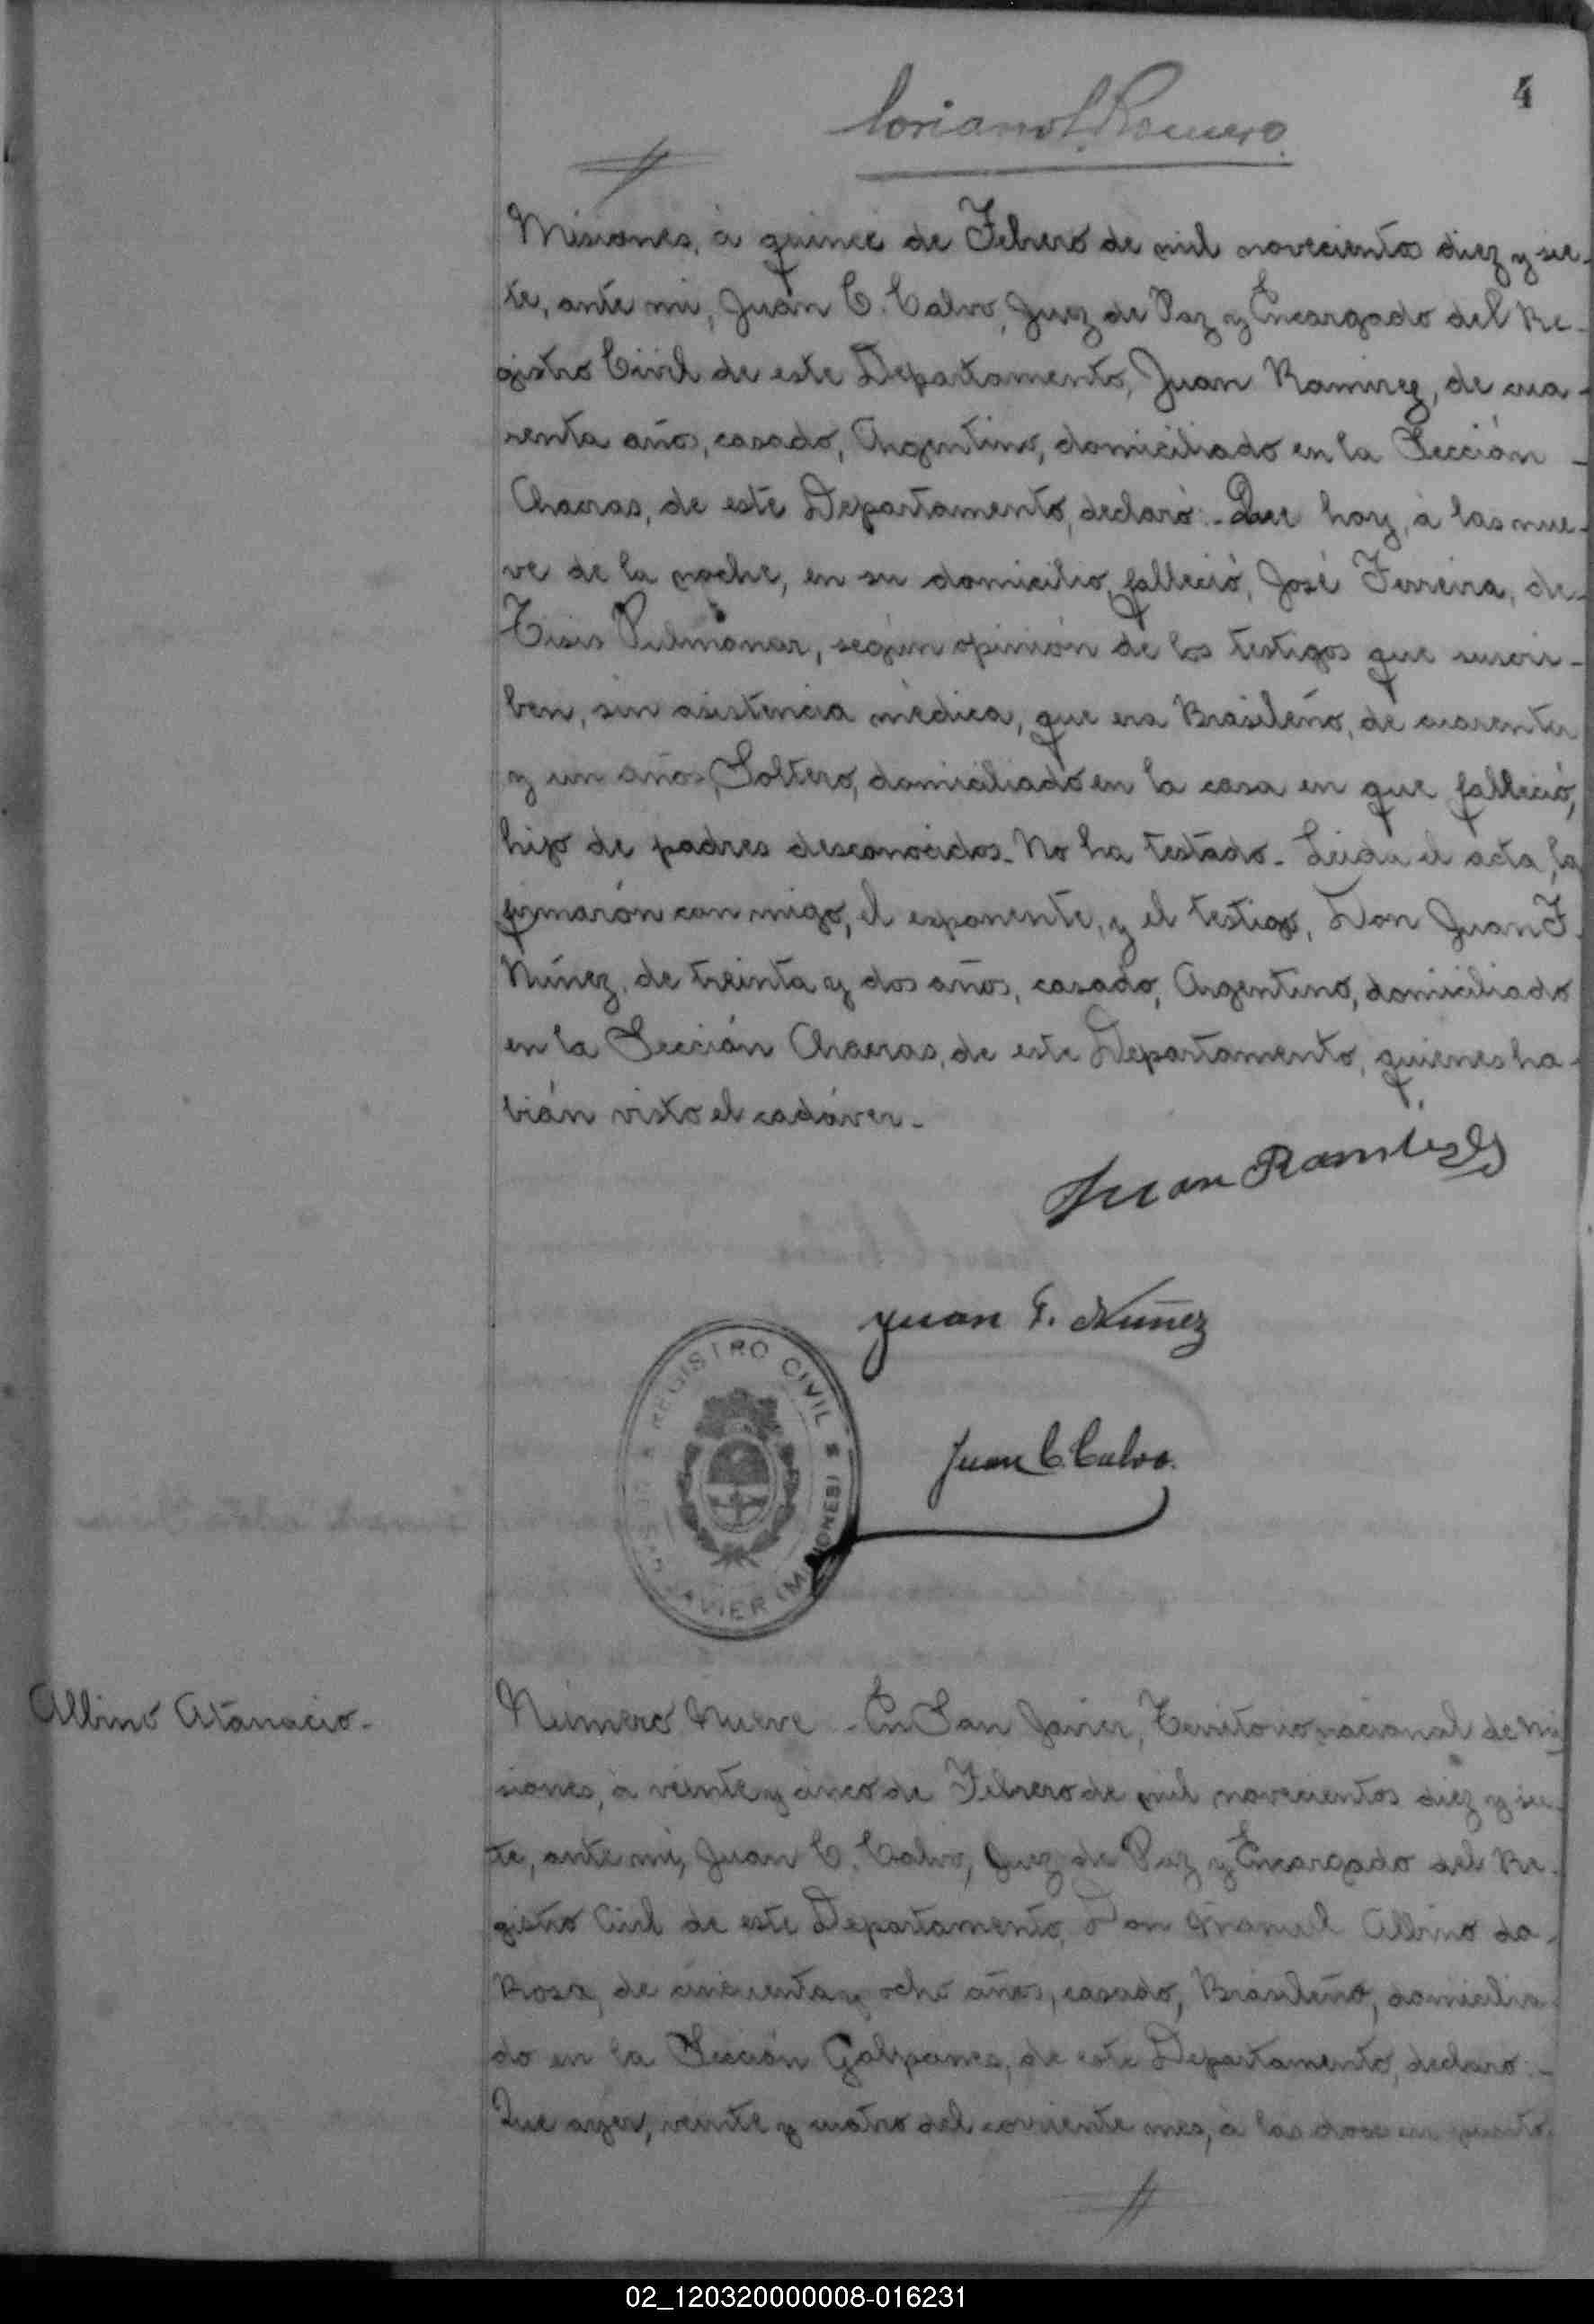 4
Coriano L. Romero.
Misiones, á quince de Febrero de mil novecientos diez y sie-
te, ante mi, Juan C. Calvo, Juez de Paz y Encargado del Re-
gistro Civil de este Departamento, Juan Ramirez, de cua-
renta años, casado, Argentino, domiciliado en la Sección -
Chacras, de este Departamento, declaró:- Que hoy, á las nue-
ve de la noche, en su domicilio, falleció, José Ferreira, de-
Tisis Pulmonar, según opinión de los testigos que suscri-
ben, sin asistencia mèdica, que era Brasileño, de cuarenta
y un años, Soltero, domiciliado en la casa en que falleció,
hijo de padres desconocidos. No ha testado. Leida el acta, la
firmarón con migo, el exponente, y el testigo, Don Juan F.
Núñez, de treinta y dos años, casado, Argentino, domiciliado
en la Sección Chacras, de este Departamento, quienes ha-
bián visto el cadáver.-
Juan Ramires
Juan F. Nuñez
REGISTRO CIVIL
DE SAN JAVIER (MISIONES)
Juan C. Calvo.
Albino Atanacio.-
Número Nueve - En San Javier, Territorio nacional de Mi
siones, á veinte y cinco de Febrero de mil novecientos diez y sie-
te, ante mi, Juan C. Calvo, Juez de Paz y Encargado del Re-
gistro Civil de este Departamento, Don Manuel Albino da-
Rosa, de cincuenta y ocho años, casado, Brasileño, domicilia-
do en la Sección Galpones, de este Departamento, declaró:-
Que ayer, veinte y cuatro del corriente mes, á las doce en punto
02_120320000008-016231